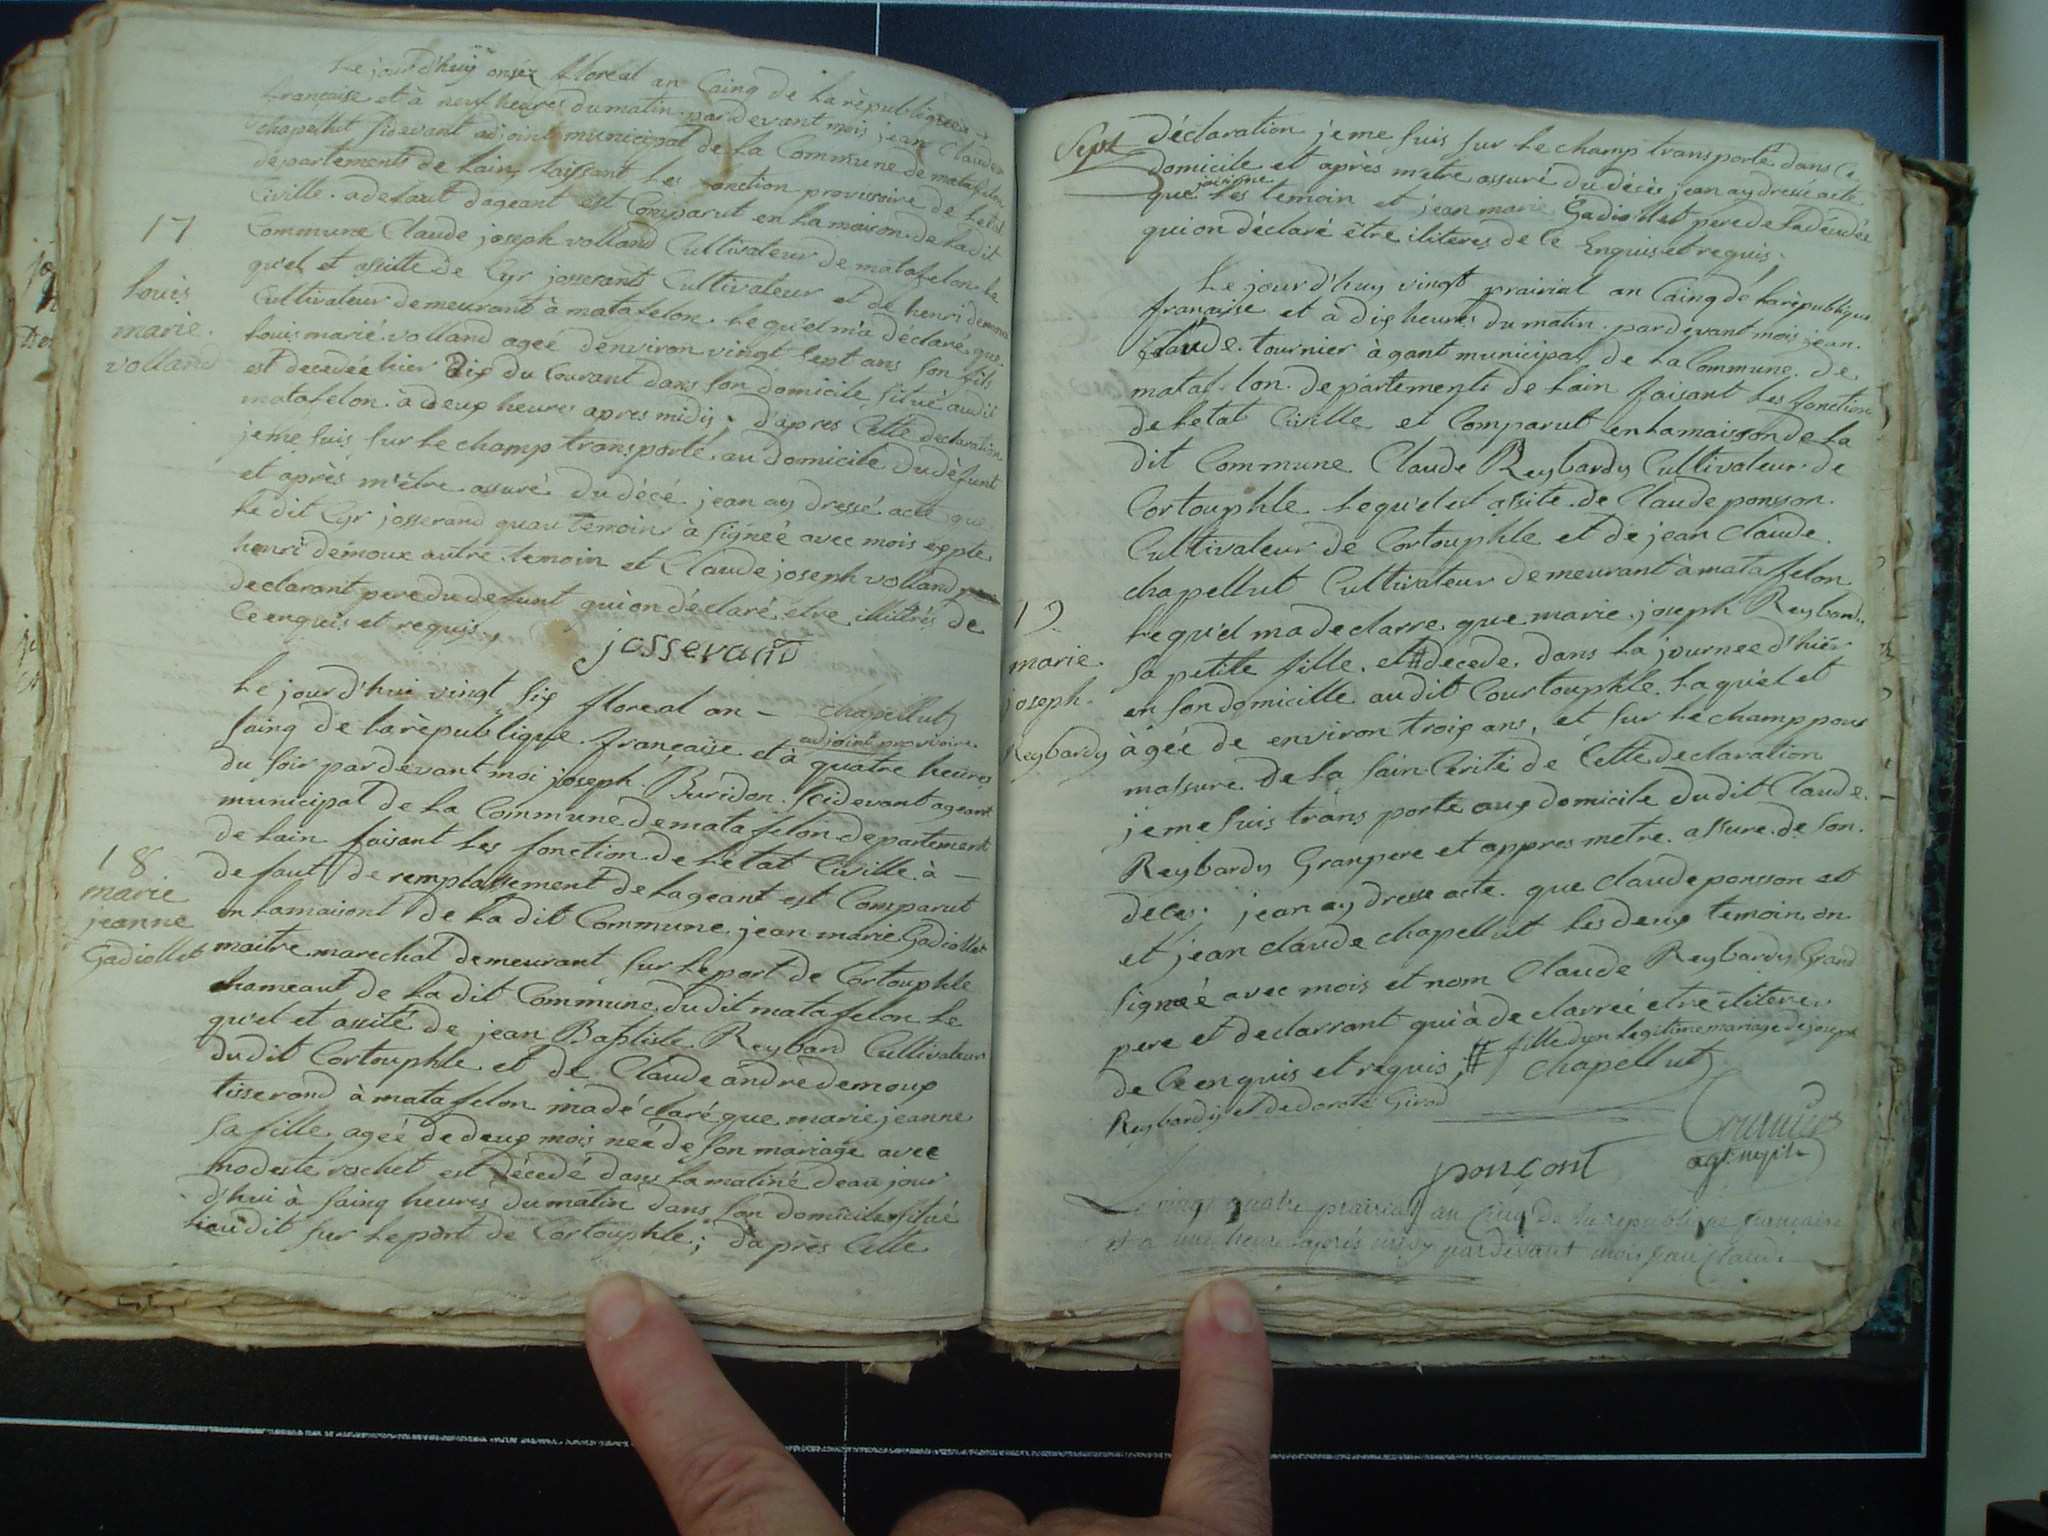 Le jourd'huy onsez floréal an Cainq de la rèpublique
française et à neuf heures du matin pardevant mois jean Claude
chapellut sidevant adjoint municipal de la Commune de matafelon
departements de lain faissant les fonction provisoire de letat
Civille. a defaut dageant est Comparut en la maison de la dit
17
Commune Claude joseph volland Cultivateur de matafelon le
qu'el et assitte de Cyr josserant Cultivateur et de henri demoux
louis
marie.
volland
Cultivateur demeurant à matafelon. le qu'el m'a déclaré que
louis marié volland ageé d'environ vingt sept ans son fils
est decedeé hier Dix du Courant dans son domicile situé audit
matafelon à deux heures apres midis; d'apres Cette declaration
je me suis sur le champ transporté au domicile du dèfunt
et après m'être assuré du décé jean ay dressé acte que
le dit Cyr josserand quau temoin à signeé avec mois expte
henri demoux autre temoin et Claude joseph volland
declarant pere du defunt qui on déclaré etre illitrés de
Ce enquis et requis.
josserand
chapellut
adjoint provisoire
Le jourd'hui vingt six floreal an -
sainq de la rèpublique française et à quatre heures
du soir pardevant moi joseph Buridon scidevant ageant
municipal de la Commune de matafelon departement
de lain faisant les fonction de letat Civille à -
18
marie
jeanne
Gadiollet
defaut de remplassement de lageant est Comparut
en la maisont de la dit Commune jean marie Gadiollet
maitre marechal demeurant sur le port de Cortouphle
hameaut de la dit Commune dudit matafelon le
qu'el et assité de jean Baptiste Reybard Cultivateur
dudit Cortouphle et de Claude andrè demoux
tisserand à matafelon ma déclaré que marie jeanne
sa fille ageé de deux mois neé de son mariage avec
modeste rochet est décedé dans la matiné deau jour
d'hui à sainq heures du matin dans son domicile situé
lieudit sur le port de Cortouphle; d'après Cette
Sept
déclaration je me suis sur le champ transporté dans Ce
domicile et après m'etre assuré du décès jean ay dressé acte
que les temoin et jean marie Gadiollet pere de la décédée
qui on déclaré être iliteres de Ce Enquis et requis;
Le jourd'huy vingt prairial an Cainq de la rèpublique
française et à dix heures du matin pardevant mois jean
claude tournier àgant municipal de la Commune de
matafelon departements de lain faisant les fonction
de letat Civille et Comparut en la maisson de la
dit Commune Claude Reybardy Cultivateur de
Cortouphle le qu'el est assite de Claude ponsson
Cultivateur de Cortouphle et de jean Claude
chapellut Cultivateur demeurant à matafelon
19
marie
joseph
Reybardy
le qu'el ma declarre que marie joseph Reybardy
sa petite fille et # decede dans la journee d'hièr
en son domicille audit Courtouphle laqu'el et
àgée de environ trois ans, et sur le champ pour
massure de la sain Cerité de Cette declaration
je me suis trans porte aux domicile dudit Claude
Reybardy Granpere et appres metre assure de son
deces. jean ay dresse acte que claude ponsson et
et jean claude chapellut les deux temoin on
signeé avec mois et nom Claude Reybardy Grand
pere et declarrant qui à declarreé etre ilitere
de Ce enquis et requis, # fille d'un legitime mariage de joseph
Reybardy et de dorote Girod
chapellut
Tournier
agt mpl
ponçont
Le vingt quatre prairial an Cinq de la republique francaise
et a une heure après midy pardevant mois jean Claude